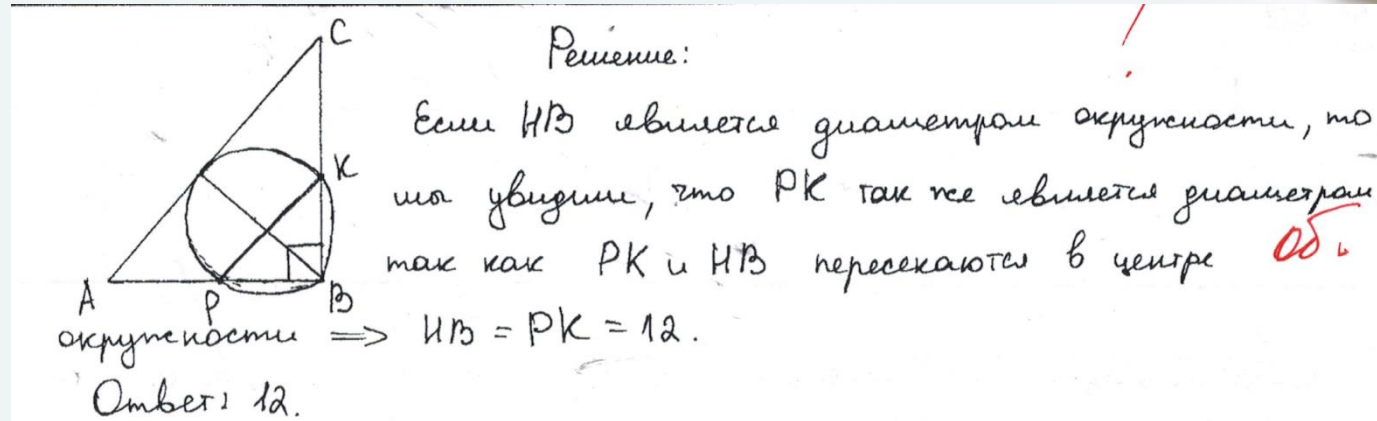 C
Решение:
Если HB является диаметром окружности, то
K
мы увидим, что PK так же является диаметром
так как PK и HB пересекаются в центре
A P B
окружности => HB = PK = 12.
Ответ: 12.